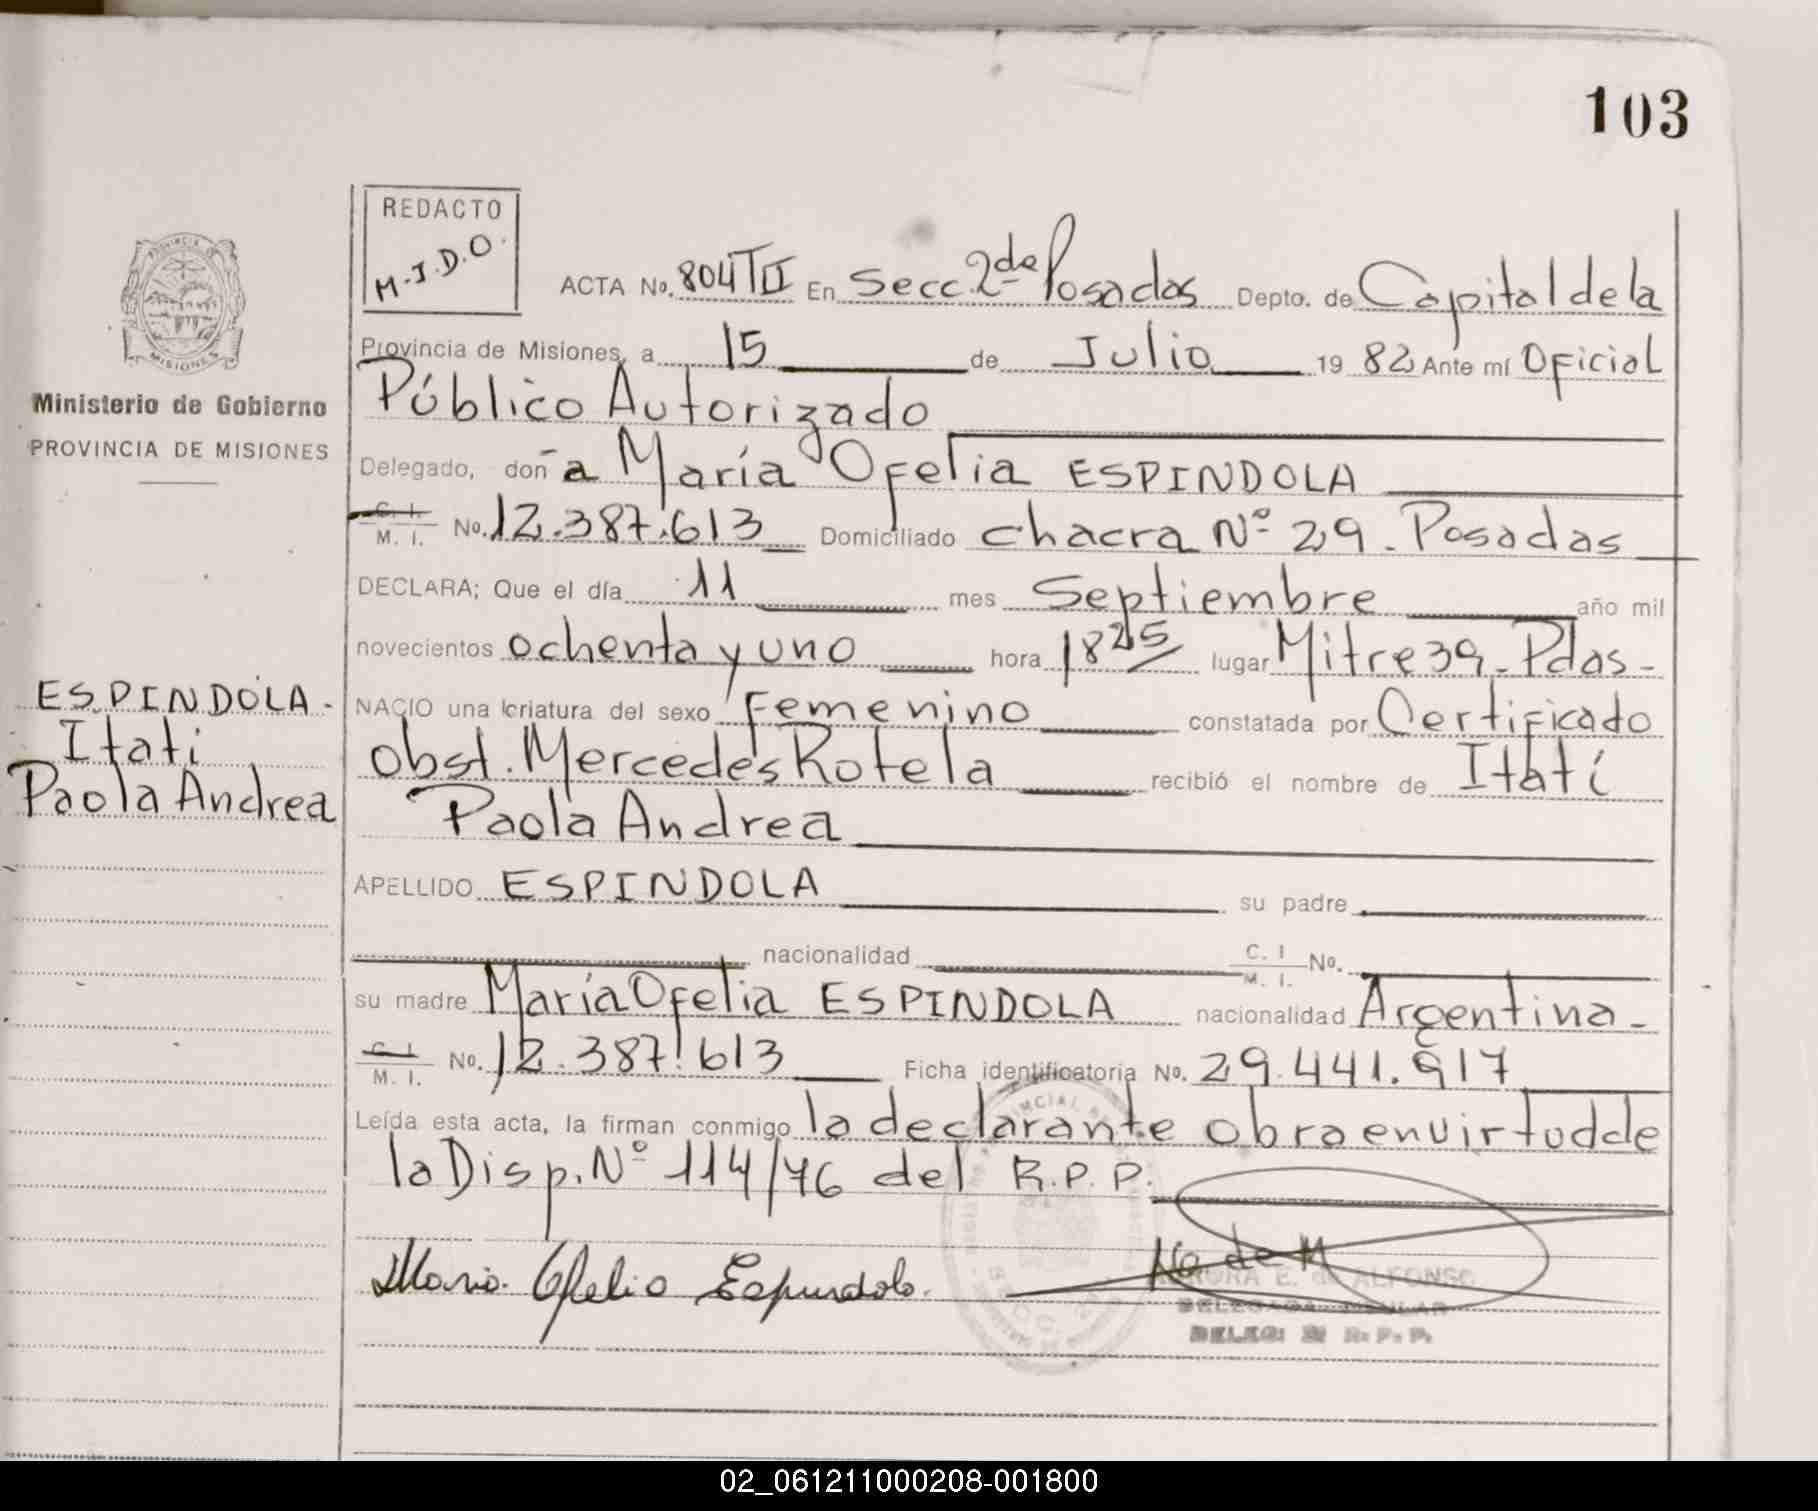 103
REDACTO
M.J.D.O.
ACTA No. 804 TII En Secc. 2da Posadas Depto. de Capital de la
Provincia de Misiones, a 15 de Julio 1982 Ante mí Oficial
Público Autorizado
Delegado, don a María Ofelia ESPINDOLA
C. I. M. I. No. 12.387.613 Domiciliado chacra Nº 29. Posadas
DECLARA; Que el día 11 mes Septiembre año mil
novecientos ochenta y uno hora 18 25 lugar Mitre 39 - Pdas -
NACIO una criatura del sexo Femenino constatada por Certificado
obst. Mercedes Rotela recibió el nombre de Itatí
Paola Andrea
APELLIDO ESPINDOLA su padre
nacionalidad C. I M. I. No.
su madre María Ofelia ESPINDOLA nacionalidad Argentina -
C. I. M. I. No. 12.387.613 Ficha identificatoria No. 29.441.917
Leída esta acta, la firman conmigo la declarante obra en virtud de
la Disp. Nº 114/76 del R.P.P.
Maria Ofelia Espindola
E. de ALFONSO
DELEGADA TITULAR
DELEG: R. P. P.
PROVINCIA DE
MISIONES
Ministerio de Gobierno
PROVINCIA DE MISIONES
ESPINDOLA -
Itati
Paola Andrea
02_061211000208-001800